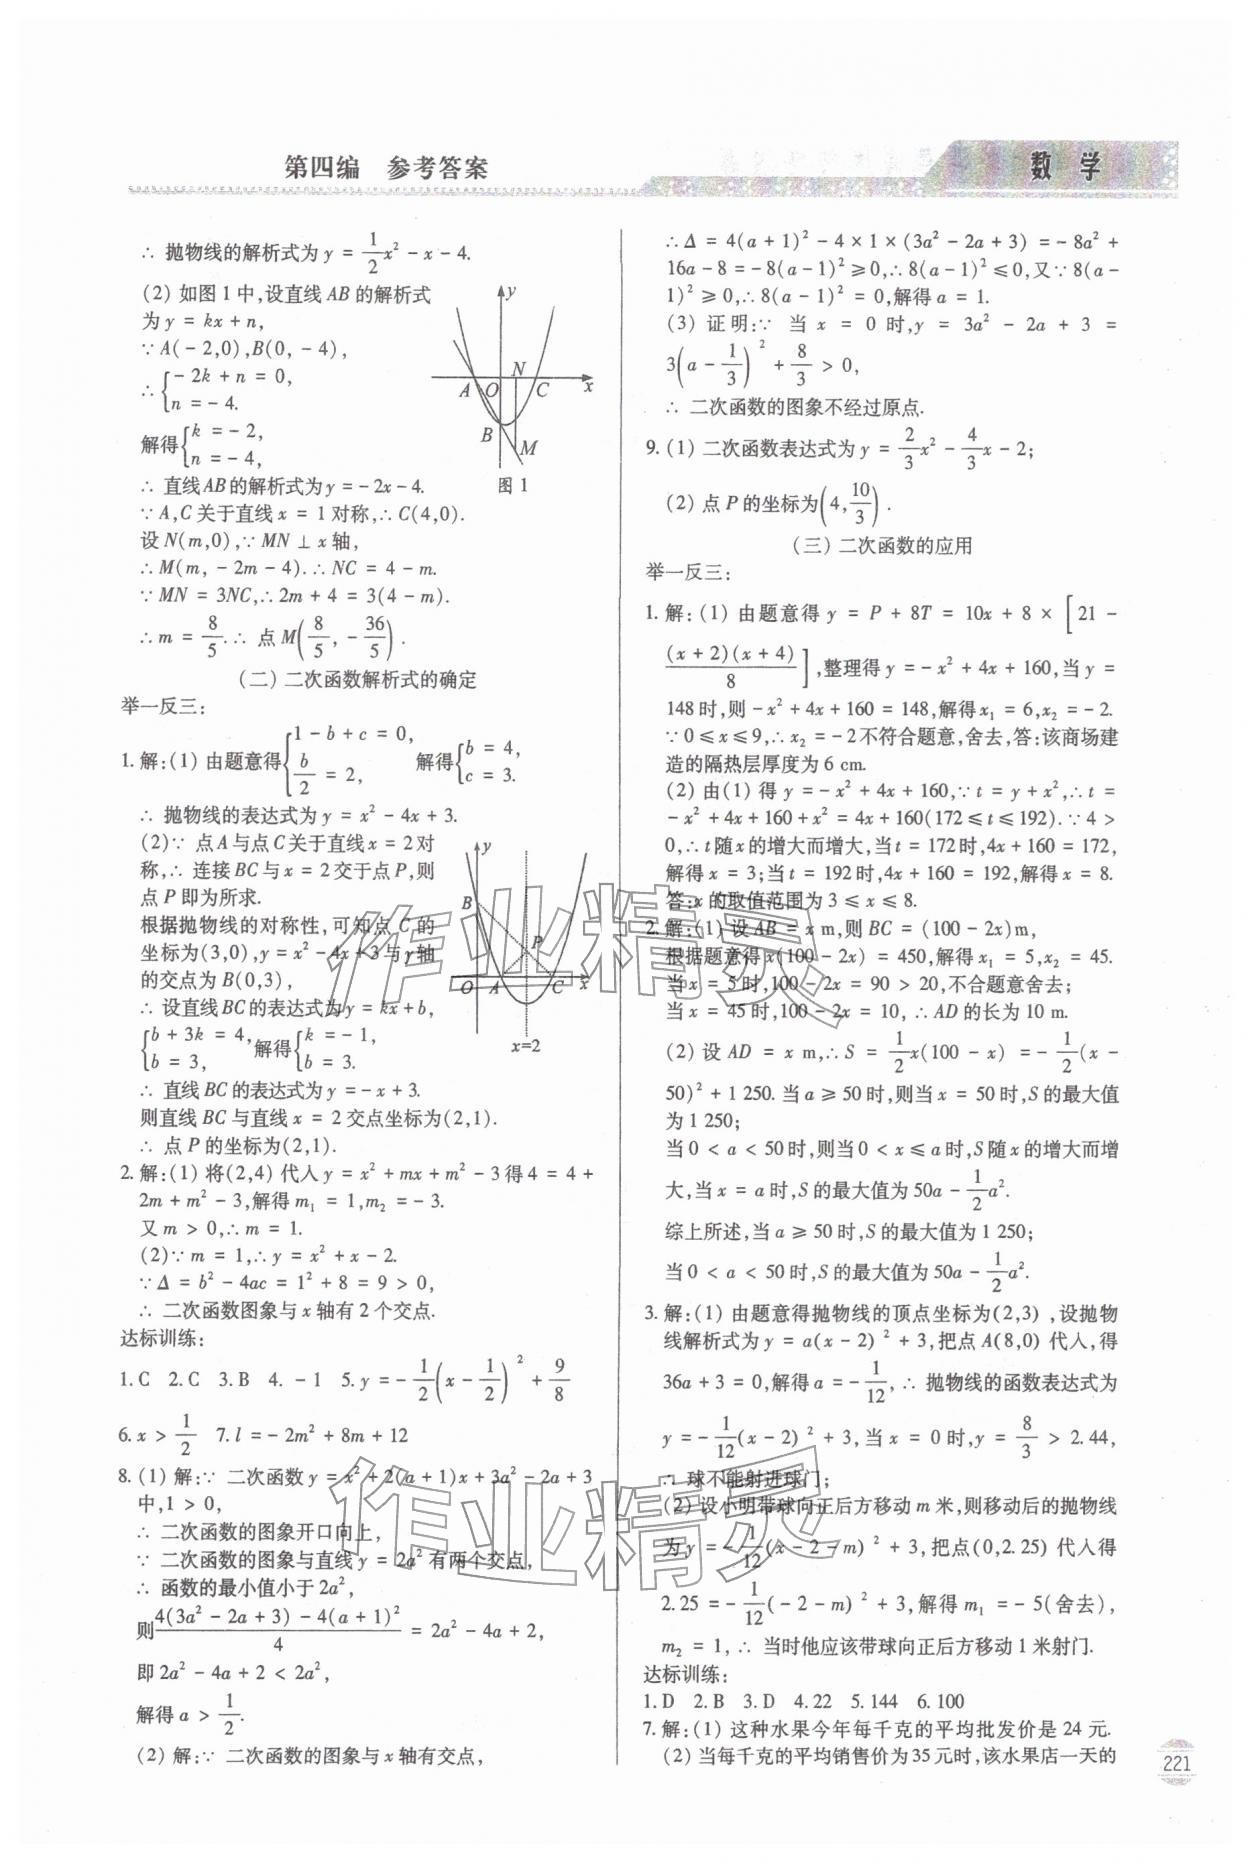 第四编 参考答案
数 学
∴ 抛物线的解析式为 y = 1/2 x² - x - 4.
(2) 如图 1 中,设直线 AB 的解析式
为 y = kx + n,
∵ A( - 2,0) ,B(0, - 4),
∴ { - 2k + n = 0, n = - 4.
解得 { k = - 2, n = - 4,
∴ 直线 AB 的解析式为 y = - 2x - 4.
∵ A,C 关于直线 x = 1 对称,∴ C(4,0).
设 N(m,0) ,∵ MN ⊥ x 轴,
∴ M(m, - 2m - 4). ∴ NC = 4 - m.
∵ MN = 3NC,∴ 2m + 4 = 3(4 - m).
∴ m = 8/5. ∴ 点 M(8/5, - 36/5).
y
N
A O C x
B
M
图 1
(二) 二次函数解析式的确定
举一反三:
1. 解:(1) 由题意得 { 1 - b + c = 0, b/2 = 2, 解得 { b = 4, c = 3.
∴ 抛物线的表达式为 y = x² - 4x + 3.
(2)∵ 点 A 与点 C 关于直线 x = 2 对
称,∴ 连接 BC 与 x = 2 交于点 P,则
点 P 即为所求.
根据抛物线的对称性,可知点 C 的
坐标为(3,0),y = x² - 4x + 3 与 y 轴
的交点为 B(0,3),
∴ 设直线 BC 的表达式为 y = kx + b,
{ b + 3k = 4, b = 3, 解得 { k = - 1, b = 3.
∴ 直线 BC 的表达式为 y = - x + 3.
则直线 BC 与直线 x = 2 交点坐标为(2,1).
∴ 点 P 的坐标为(2,1).
y
B
P
O A C x
x=2
2. 解:(1) 将(2,4) 代入 y = x² + mx + m² - 3 得 4 = 4 +
2m + m² - 3,解得 m₁ = 1,m₂ = - 3.
又 m > 0,∴ m = 1.
(2)∵ m = 1,∴ y = x² + x - 2.
∵ Δ = b² - 4ac = 1² + 8 = 9 > 0,
∴ 二次函数图象与 x 轴有 2 个交点.
达标训练:
1. C 2. C 3. B 4. - 1 5. y = - 1/2 (x - 1/2)² + 9/8
6. x > 1/2 7. l = - 2m² + 8m + 12
8. (1) 解:∵ 二次函数 y = x² + 2(a + 1)x + 3a² - 2a + 3
中,1 > 0,
∴ 二次函数的图象开口向上,
∵ 二次函数的图象与直线 y = 2a² 有两个交点,
∴ 函数的最小值小于 2a²,
则 [4(3a² - 2a + 3) - 4(a + 1)²]/4 = 2a² - 4a + 2,
即 2a² - 4a + 2 < 2a²,
解得 a > 1/2.
(2) 解:∵ 二次函数的图象与 x 轴有交点,
∴ Δ = 4(a + 1)² - 4 × 1 × (3a² - 2a + 3) = - 8a² +
16a - 8 = - 8(a - 1)² ≥ 0,∴ 8(a - 1)² ≤ 0,又∵ 8(a -
1)² ≥ 0,∴ 8(a - 1)² = 0,解得 a = 1.
(3) 证明:∵ 当 x = 0 时,y = 3a² - 2a + 3 =
3(a - 1/3)² + 8/3 > 0,
∴ 二次函数的图象不经过原点.
9. (1) 二次函数表达式为 y = 2/3 x² - 4/3 x - 2;
(2) 点 P 的坐标为(4, 10/3).
(三) 二次函数的应用
举一反三:
1. 解:(1) 由题意得 y = P + 8T = 10x + 8 × [21 -
(x + 2)(x + 4)/8],整理得 y = - x² + 4x + 160,当 y =
148 时,则 - x² + 4x + 160 = 148,解得 x₁ = 6,x₂ = - 2.
∵ 0 ≤ x ≤ 9,∴ x₂ = - 2 不符合题意,舍去,答:该商场建
造的隔热层厚度为 6 cm.
(2) 由(1) 得 y = - x² + 4x + 160,∵ t = y + x²,∴ t =
- x² + 4x + 160 + x² = 4x + 160(172 ≤ t ≤ 192). ∵ 4 >
0,∴ t 随 x 的增大而增大,当 t = 172 时,4x + 160 = 172,
解得 x = 3;当 t = 192 时,4x + 160 = 192,解得 x = 8.
答:x 的取值范围为 3 ≤ x ≤ 8.
2. 解:(1) 设 AB = x m,则 BC = (100 - 2x)m,
根据题意得 x(100 - 2x) = 450,解得 x₁ = 5,x₂ = 45.
当 x = 5 时,100 - 2x = 90 > 20,不合题意舍去;
当 x = 45 时,100 - 2x = 10, ∴ AD 的长为 10 m.
(2) 设 AD = x m,∴ S = 1/2 x(100 - x) = - 1/2 (x -
50)² + 1 250. 当 a ≥ 50 时,则当 x = 50 时,S 的最大值
为 1 250;
当 0 < a < 50 时,则当 0 < x ≤ a 时,S 随 x 的增大而增
大,当 x = a 时,S 的最大值为 50a - 1/2 a².
综上所述,当 a ≥ 50 时,S 的最大值为 1 250;
当 0 < a < 50 时,S 的最大值为 50a - 1/2 a².
3. 解:(1) 由题意得抛物线的顶点坐标为(2,3) ,设抛物
线解析式为 y = a(x - 2)² + 3,把点 A(8,0) 代入,得
36a + 3 = 0,解得 a = - 1/12, ∴ 抛物线的函数表达式为
y = - 1/12 (x - 2)² + 3,当 x = 0 时,y = 8/3 > 2.44,
∴ 球不能射进球门;
(2) 设小明带球向正后方移动 m 米,则移动后的抛物线
为 y = - 1/12 (x - 2 - m)² + 3,把点(0,2.25) 代入得
2.25 = - 1/12 ( - 2 - m)² + 3,解得 m₁ = - 5(舍去),
m₂ = 1, ∴ 当时他应该带球向正后方移动 1 米射门.
达标训练:
1. D 2. B 3. D 4. 22 5. 144 6. 100
7. 解:(1) 这种水果今年每千克的平均批发价是 24 元.
(2) 当每千克的平均销售价为 35 元时,该水果店一天的
221
作业精灵
作业精灵